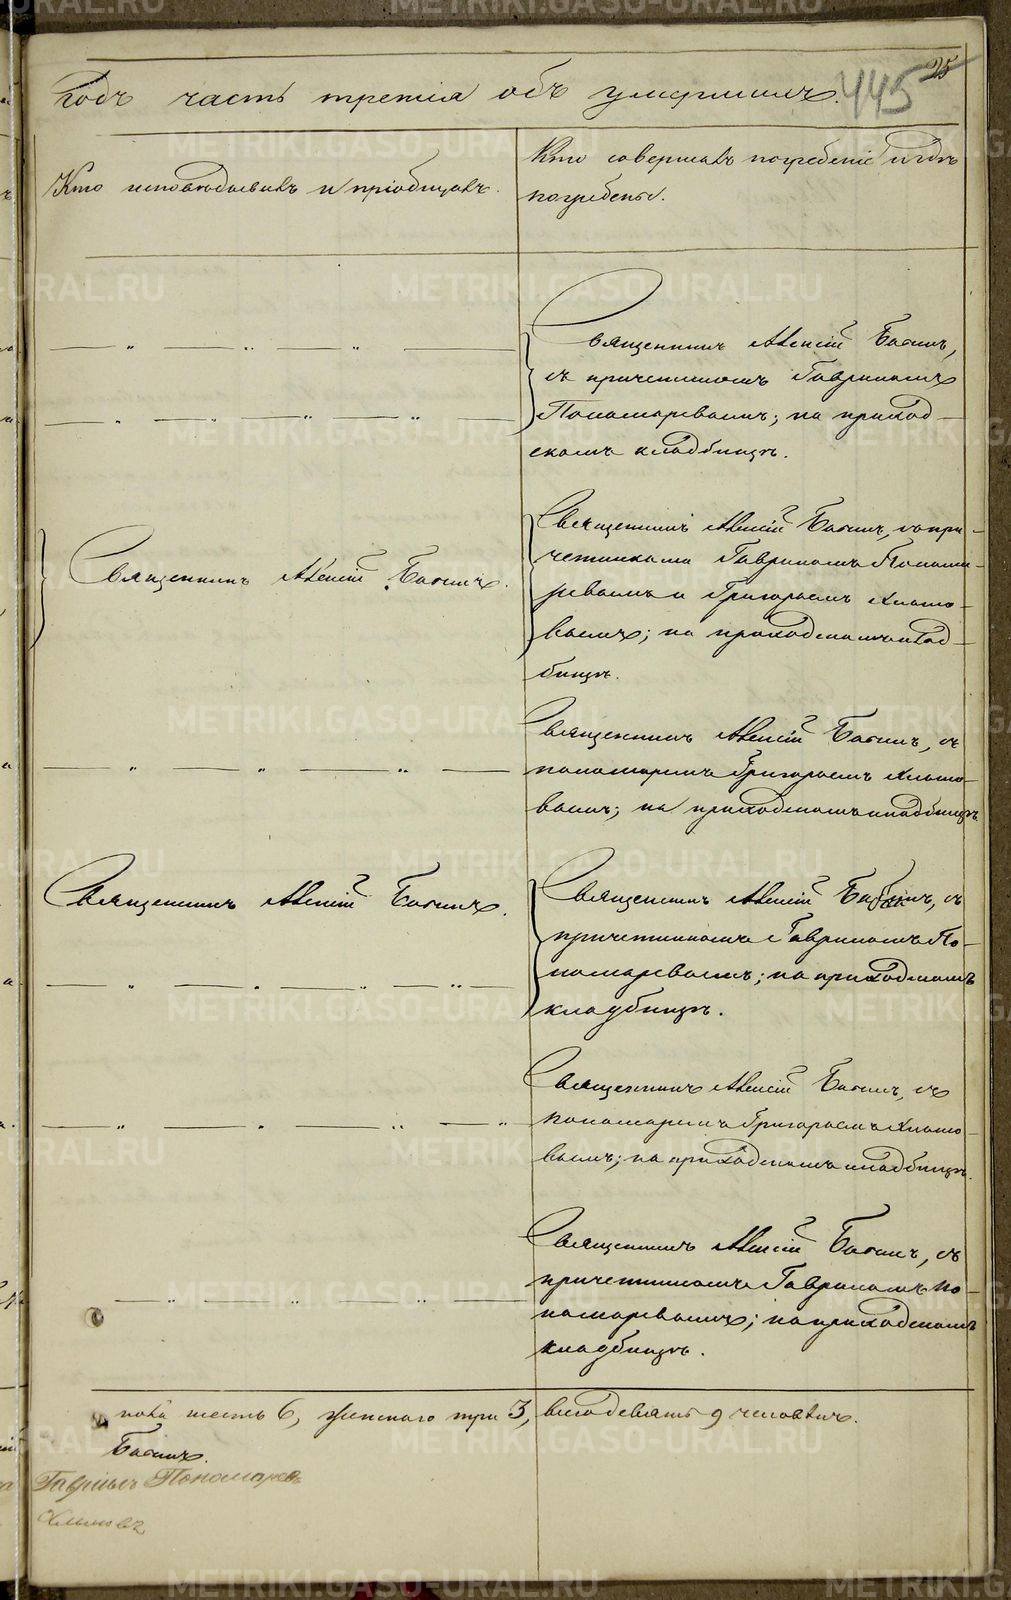 25
445
годъ часть третія объ умершихъ.
Кто исповѣдывалъ и пріобщалъ.
Кто совершалъ погребеніе и гдѣ
погребены.
Священникъ Алексій
съ причетникомъ Гавриломъ
Пономаревымъ; на приход-
скомъ кладбищѣ.
Священникъ Алексій
Священникъ Алексій со при-
четниками Гавриломъ Понома-
ревымъ и Григорьемъ
вымъ; на приходскомъ клад-
бищѣ.
Священникъ Алексій съ
пономаремъ Григорьемъ
вымъ; на приходскомъ кладбищѣ
Священникъ Алексій
Священникъ Алексій съ
причетникомъ Гавриломъ По-
номаревымъ; на приходскомъ
кладбищѣ.
Священникъ Алексій съ
пономаремъ Григорьемъ
вымъ; на приходскомъ кладбищѣ.
Священникъ Алексій съ
причетникомъ Гавриломъ По-
номаревымъ; на приходскомъ
кладбищѣ.
пола шесть 6, женскаго три 3, всего девять 9 человѣкъ.
Гаврилъ Пономаревъ
METRIKI.GASO-URAL.RU